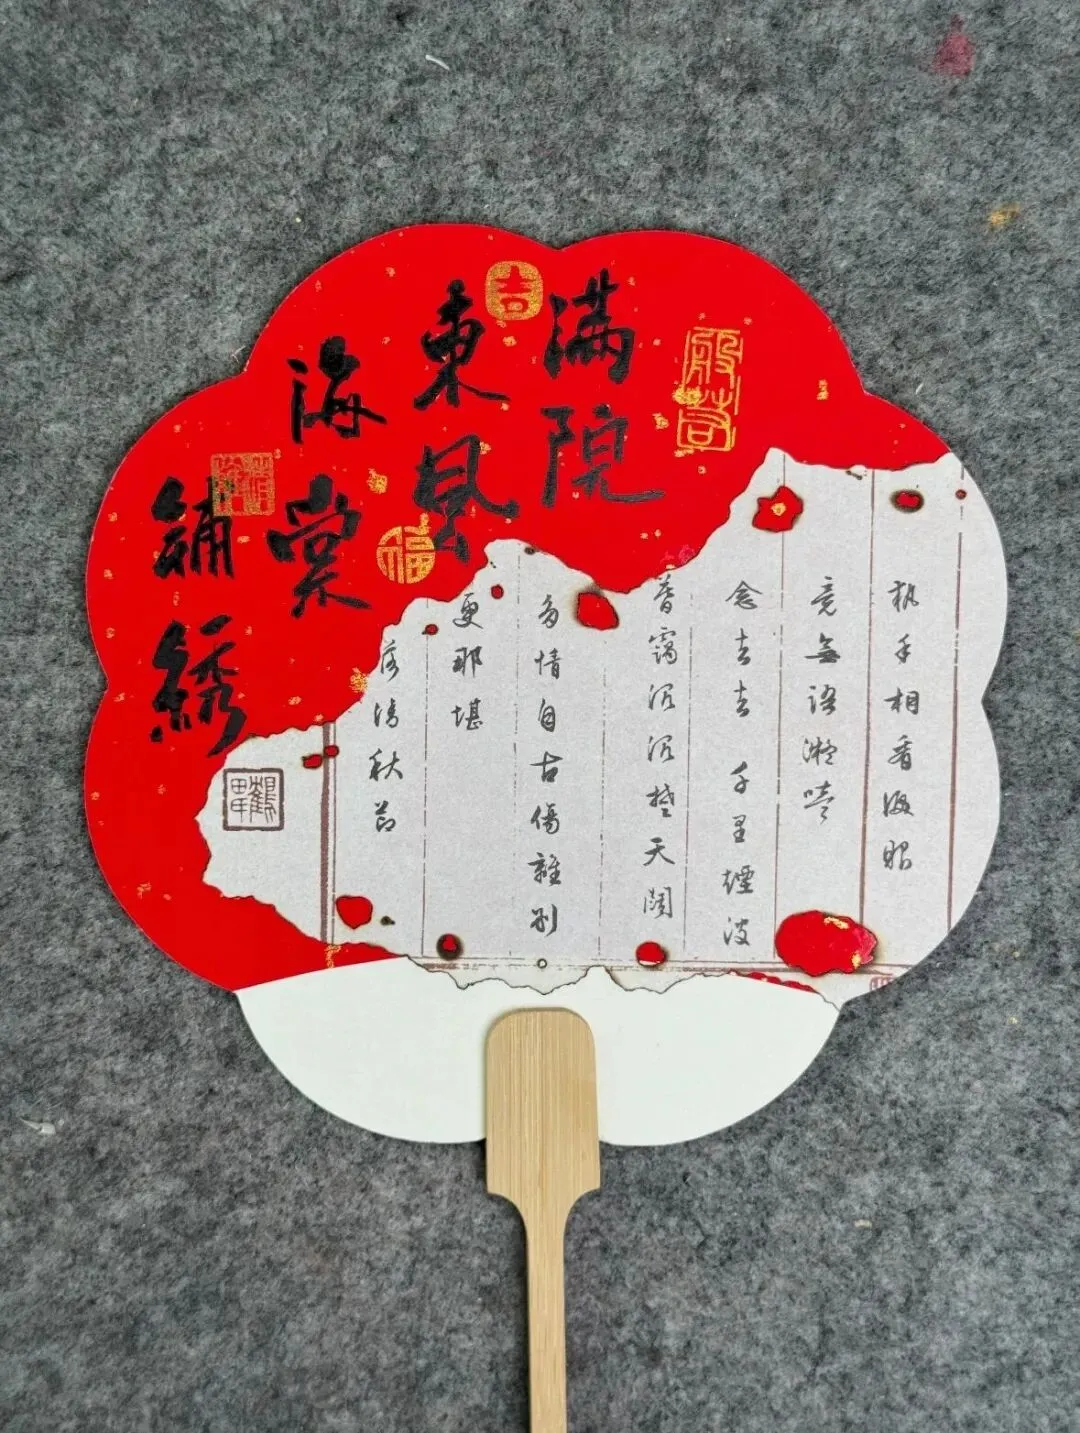 满院
東風
海棠
鋪繡
执手相看淚眼
竟無語凝噎
念去去千里煙波
暮靄沉沉楚天闊
多情自古傷離別
更那堪
落清秋節
吉
福